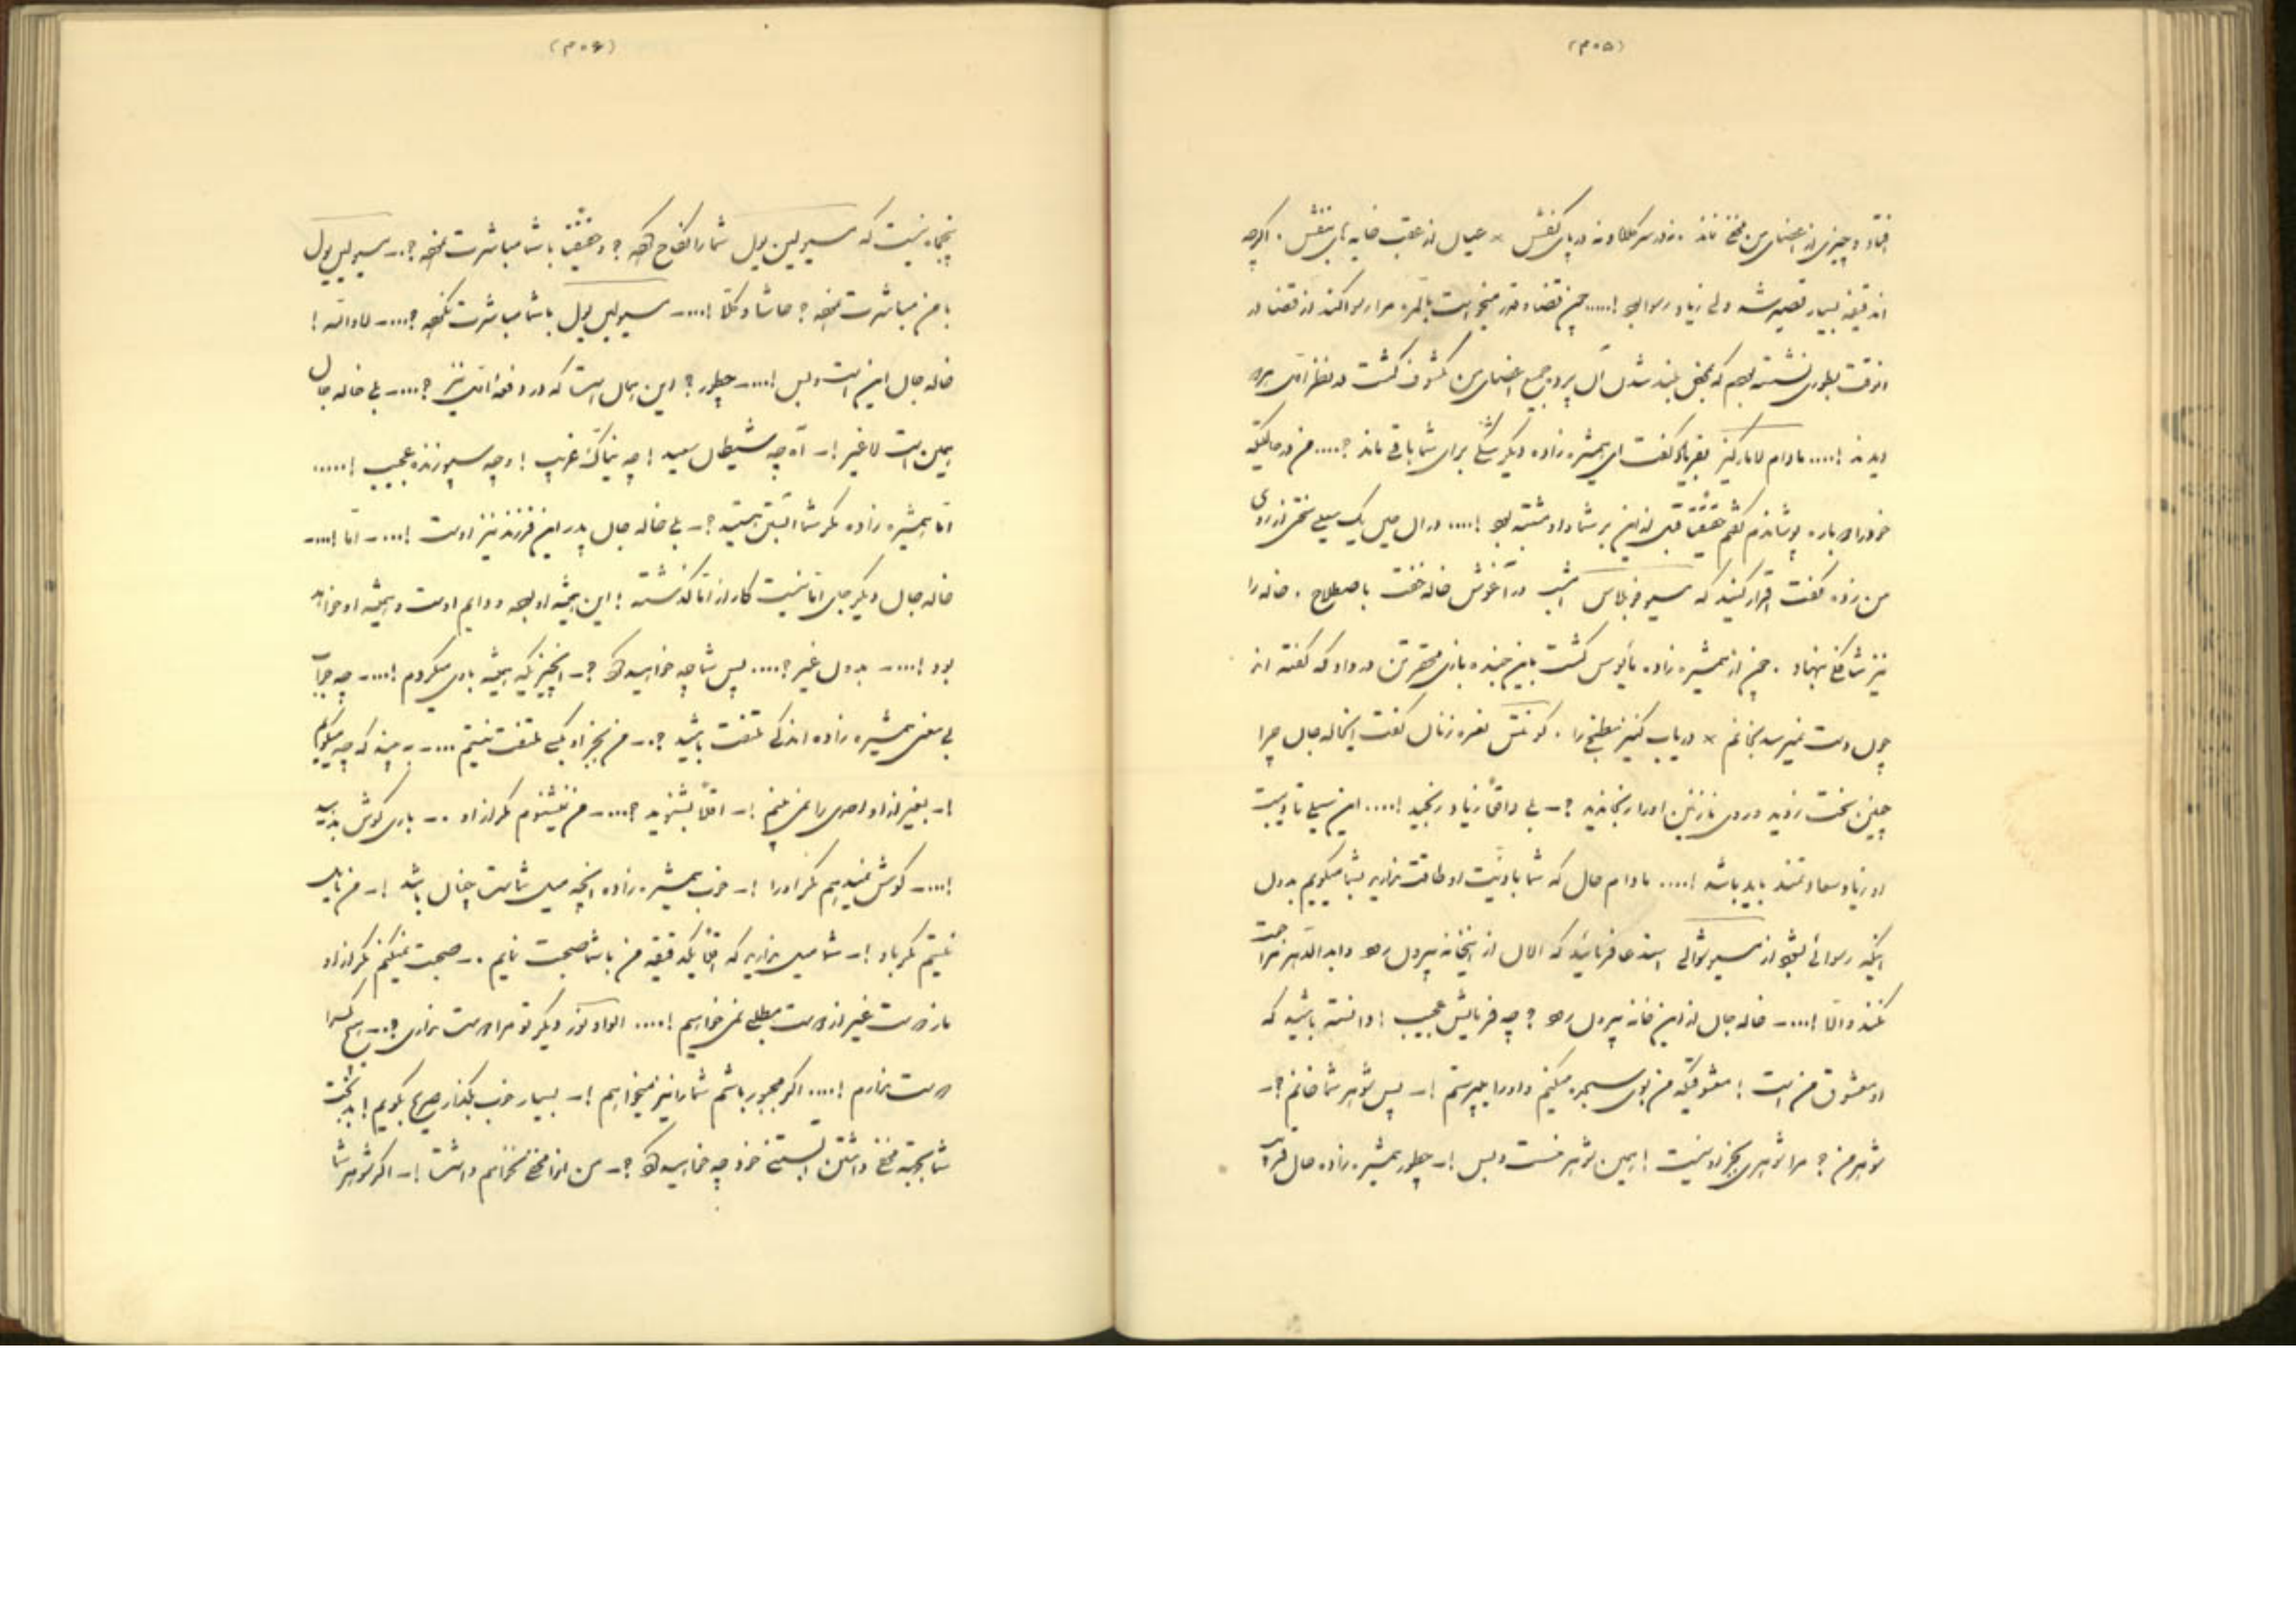 (۳۰۵)
افتاد و چیزی از اعضای من مخفی نماند نه در سر کلاه و نه در پای کفش × عیال از عقب خایه بنفش . اگرچه
دقیقه بسیار قصیر شد ولی زیاد رسوا بود !..... چون قضا و قدر میخواست بالمره مرا رسوا کند از قضا در
انوقت بطوری نشسته بودم که بمحض بلند شدن آن پرده جمیع اعضای من مکشوف گشت در نظر
دیدند !.... مادام لامارکیز بفریاد گفت ای همشیره زاده دیگر شکی برای شما باقی ماند ?.... من در حالتیکه
خود را دوباره پوشاندم گفتم حقیقة قبل از این بر شما و او مشتبه بود !.... در آن حین یک سیلی سختی از روی
من زده گفت اقرار کنید که مسیو امشب در آغوش خاله خفت باصطلاح . خاله را
نیز نهاد . چون از همشیره زاده مأیوس گشت باین در داد که گفته اند
چون دست نمیرسد بخانم × دریاب کنیز مطبخی را . نعره زنان گفت ایخاله جان چرا
چنین سخت زدید و روی نازنین او را رنجاندید ?ـ بلی واقعاً زیاد رنجید !.... این سیلی
او زیاد سعادتمند باید باشد !.... مادام حال که شما باذیت او طاقت ندارید بشما میگویم بدون
اینکه رسوائی بشود از مسیو استدعا فرمائید که الان از اینخانه بیرون رود و ابد الدهر مراجعت
نکند والّا !....ـ خاله جان از این خانه بیرون رود ? چه فرمایش عجیب ! دانسته باشید که
او معشوق من است ! معشوقیکه من برای سجده میکنم و او را میپرستم !ـ پس شوهر شما خانم ?ـ
شوهر من ? مرا شوهری بجز او نیست ! همین شوهر منست و بس !ـ چطور همشیره زاده جان
(۳۰۶)
پنجماه نیست که مسیو لین بول شما را نکاح کرده ? و حقیقة با شما مباشرت نموده ?..ـ مسیو لین بول
با من مباشرت نموده ? حاشا و کلّا !....ـ مسیو لین بول با شما مباشرت نکرده ?....ـ لا والله !
خاله جان این است و بس !....ـ چطور ? این همان است که در دفعه اتی نیز ?....ـ بلی خاله جان
همین است لاغیر !ـ آه چه شیطان سعید ! چه نیاک غریب ! و چه سپوزنده عجیب !.....
امّا همشیره زاده مگر شما آبستن هستید ?ـ بلی خاله جان پدر این فرزند نیز اوست !....ـ امّا !....ـ
خاله جان دیگر جای امّا نیست کار از امّا گذشته ! این همیشه او بوده و دایم اوست و همیشه او خواهد
بود !....ـ بدون غیر ?.... پس شما چه خواهید کرد ?ـ انچیزیکه همیشه با وی میکردم !....ـ چه جواب
بی معنی همشیره زاده اندکی ملتفت باشید ?..ـ من بجز او بکسی ملتفت نیستم ....ـ ببینید که چه میگویم
!ـ بغیر از او احدی را نمی بینم !ـ اقلّاً بشنوید ?....ـ من نمیشنوم مگر از او ..ـ باری گوش بدهید
!....ـ گوش نمیدهم مگر او را !ـ خوب همشیره زاده انچه میل شماست چنان باشد !ـ من مایل
نیستم مگر باو !ـ شما میل ندارید که اقلّاً یکدقیقه من با شما صحبت نمایم ..ـ صحبت نمیکنم مگر از او
ما از دوست غیر از دوست مطلبی نمی خواهیم !.... دیگر تو مرا دوست نداری ?..ـ هیچ کس را
دوست ندارم !.... اگر مجبور باشم شما را نیز نمیخواهم !ـ بسیار خوب بگذار صریح بگویم !
شما بجهة مخفی داشتن آبستنی خود چه خواهید کرد ?ـ من انرا مخفی نخواهم داشت !ـ اگر شوهر شما